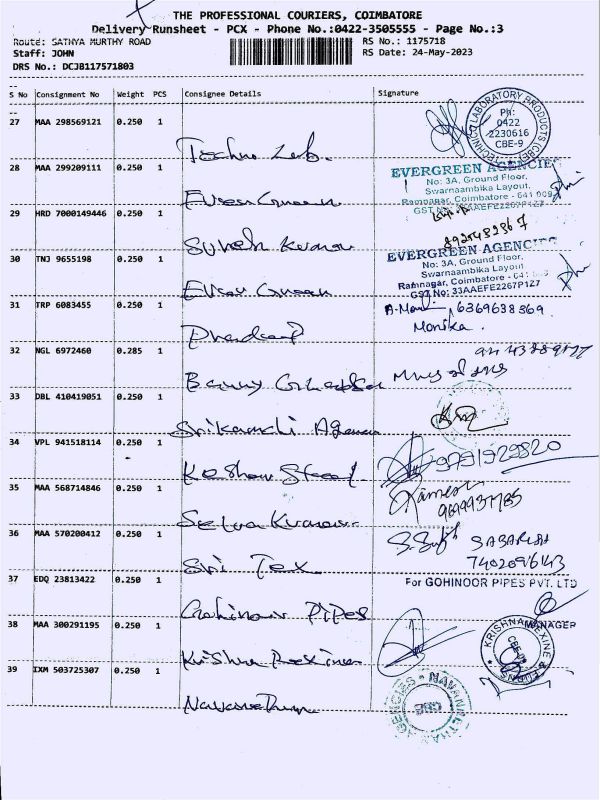 THE PROFESSIONAL COURIERS, COIMBATORE
Delivery Runsheet - PCX - Phone No.:0422-3505555 - Page No.:3
Route: SATHYA MURTHY ROAD RS No.: 1175718
Staff: JOHN RS Date: 24-May-2023
DRS No.: DCJB117571803
S No Consignment No Weight PCS Consignee Details Signature
27 MAA 298569121 0.250 1
LABORATORY PRODUCTS
Ph:
0422
2230616
CBE-9
Techno Lab.
28 MAA 299209111 0.250 1
EVERGREEN AGENCIES
No: 3A, Ground Floor,
Swarnaambika Layout,
Ramnagar, Coimbatore - 641 009
GST No: 33AAEFE2267P1Z7
Ever Green
29 HRD 7000149446 0.250 1
Suresh Kumar
30 TNJ 9655198 0.250 1
EVERGREEN AGENCIES
No: 3A, Ground Floor,
Swarnaambika Layout
Ramnagar, Coimbatore - 641
GST No: 33AAEFE2267P1Z7
Ever Green
31 TRP 6083455 0.250 1
6369638369
Monika.
32 NGL 6972460 0.285 1
33 DBL 410419051 0.250 1
Agencies
34 VPL 941518114 0.250 1
9791929820
Steel
35 MAA 568714846 0.250 1
Ramesh
Selva Kumar.
36 MAA 570200412 0.250 1
7402096143
Sri Tex
37 EDQ 23813422 0.250 1
For GOHINOOR PIPES PVT. LTD
Gohinoor Pipes
MANAGER
38 MAA 300291195 0.250 1
KRISHNA REXINE
Krishna Rexine
39 IXM 503725307 0.250 1
NAVANEETHAN AGENCIES
CBE